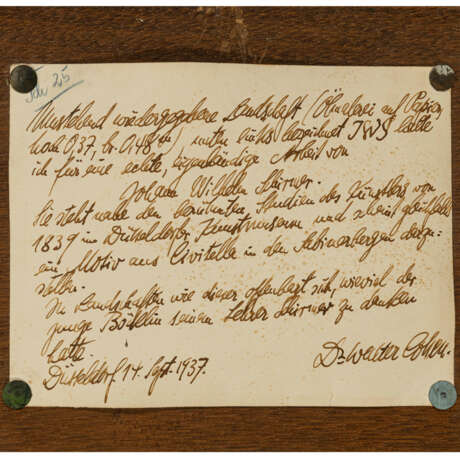 Umstehend wiedergegebene Landschaft (Ölmalerei auf Papier,
hoch 0,37, br. 0,48 m), unten links bezeichnet JWS halte
ich für eine echte, eigenhändige Arbeit von
Johann Wilhelm Schirmer.
Sie steht nahe den berühmten Studien des Künstlers von
1839 im Düsseldorfer Kunstmuseum und scheint gleichfalls
ein Motiv aus Civitella in den Sabinerbergen darzu=
stellen.
In Landschaften wie dieser offenbart sich, wieviel der
junge Böcklin seinem Lehrer Schirmer zu danken
hatte.
Düsseldorf 14. Sept. 1937.
Dr. Walter Cohen.
25